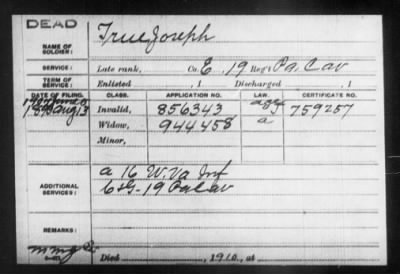 DEAD
NAME OF SOLDIER: True Joseph
SERVICE: Late rank, Co. E, 19 Reg't Pa. Cav
TERM OF SERVICE: Enlisted , 1 Discharged , 1
DATE OF FILING. CLASS. APPLICATION NO. LAW. CERTIFICATE NO.
Aug 13 Invalid, 856343 759257
Widow, 944458 a
Minor,
ADDITIONAL SERVICES:
a 16 W. Va Inf
19 Pa Cav
REMARKS:
Died , 1910, at